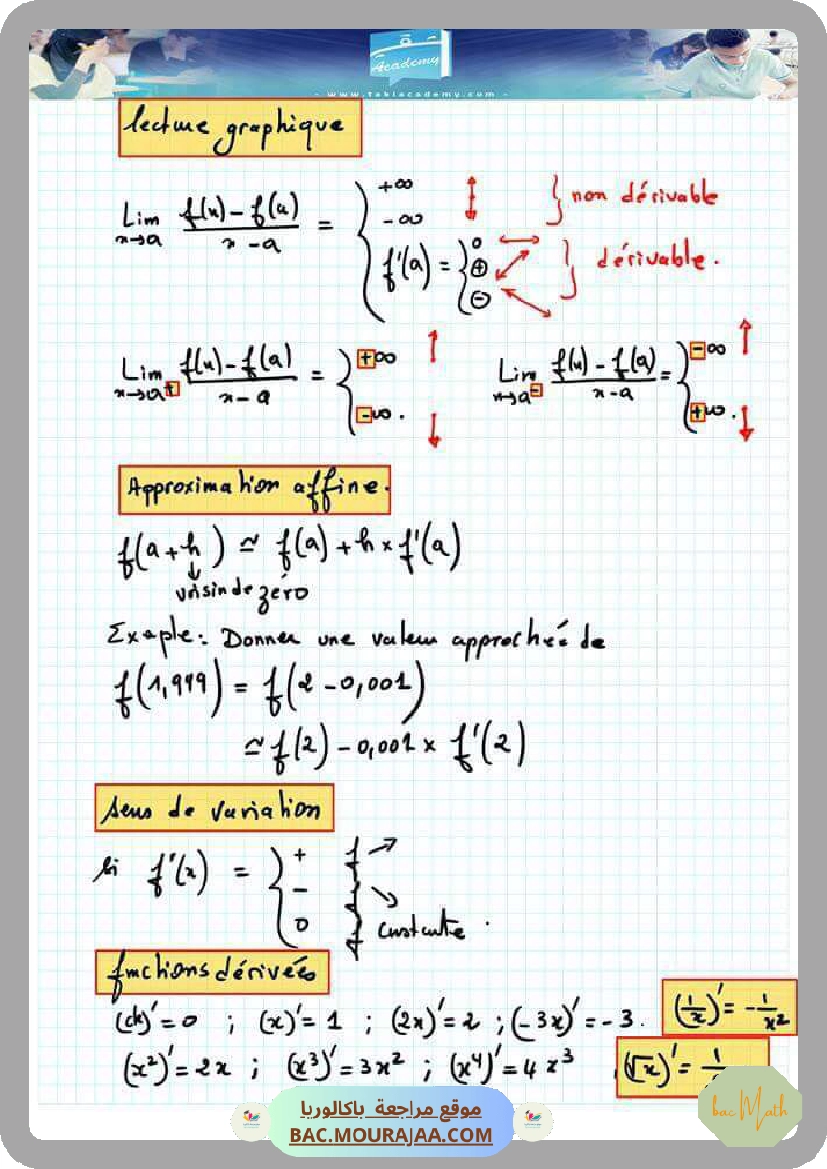 Academy
- www.takiacademy.com -
lecture graphique
Lim x→a (f(x) - f(a)) / (x - a) = { +∞ ↕ } non dérivable
-∞
f'(a) = { 0 ↔ } dérivable.
⊕
⊖
Lim x→a+ (f(x) - f(a)) / (x - a) = { +∞ ↑
-∞. ↓
Lim x→a- (f(x) - f(a)) / (x - a) = { -∞ ↑
+∞. ↓
Approximation affine.
f(a + h) ≃ f(a) + h × f'(a)
↓
voisin de zéro
Exaple: Donner une valeur approchée de
f(1,999) = f(2 - 0,001)
≃ f(2) - 0,001 × f'(2)
Sens de variation
si f'(x) = { + f ↗
- f ↘
0 f constante.
fonctions dérivées
(ck)' = 0 ; (x)' = 1 ; (2x)' = 2 ; (-3x)' = -3. (1/x)' = -1/x²
(x²)' = 2x ; (x³)' = 3x² ; (x⁴)' = 4x³ (√x)' = 1/
موقع مراجعة باكالوريا
BAC.MOURAJAA.COM
bac Math